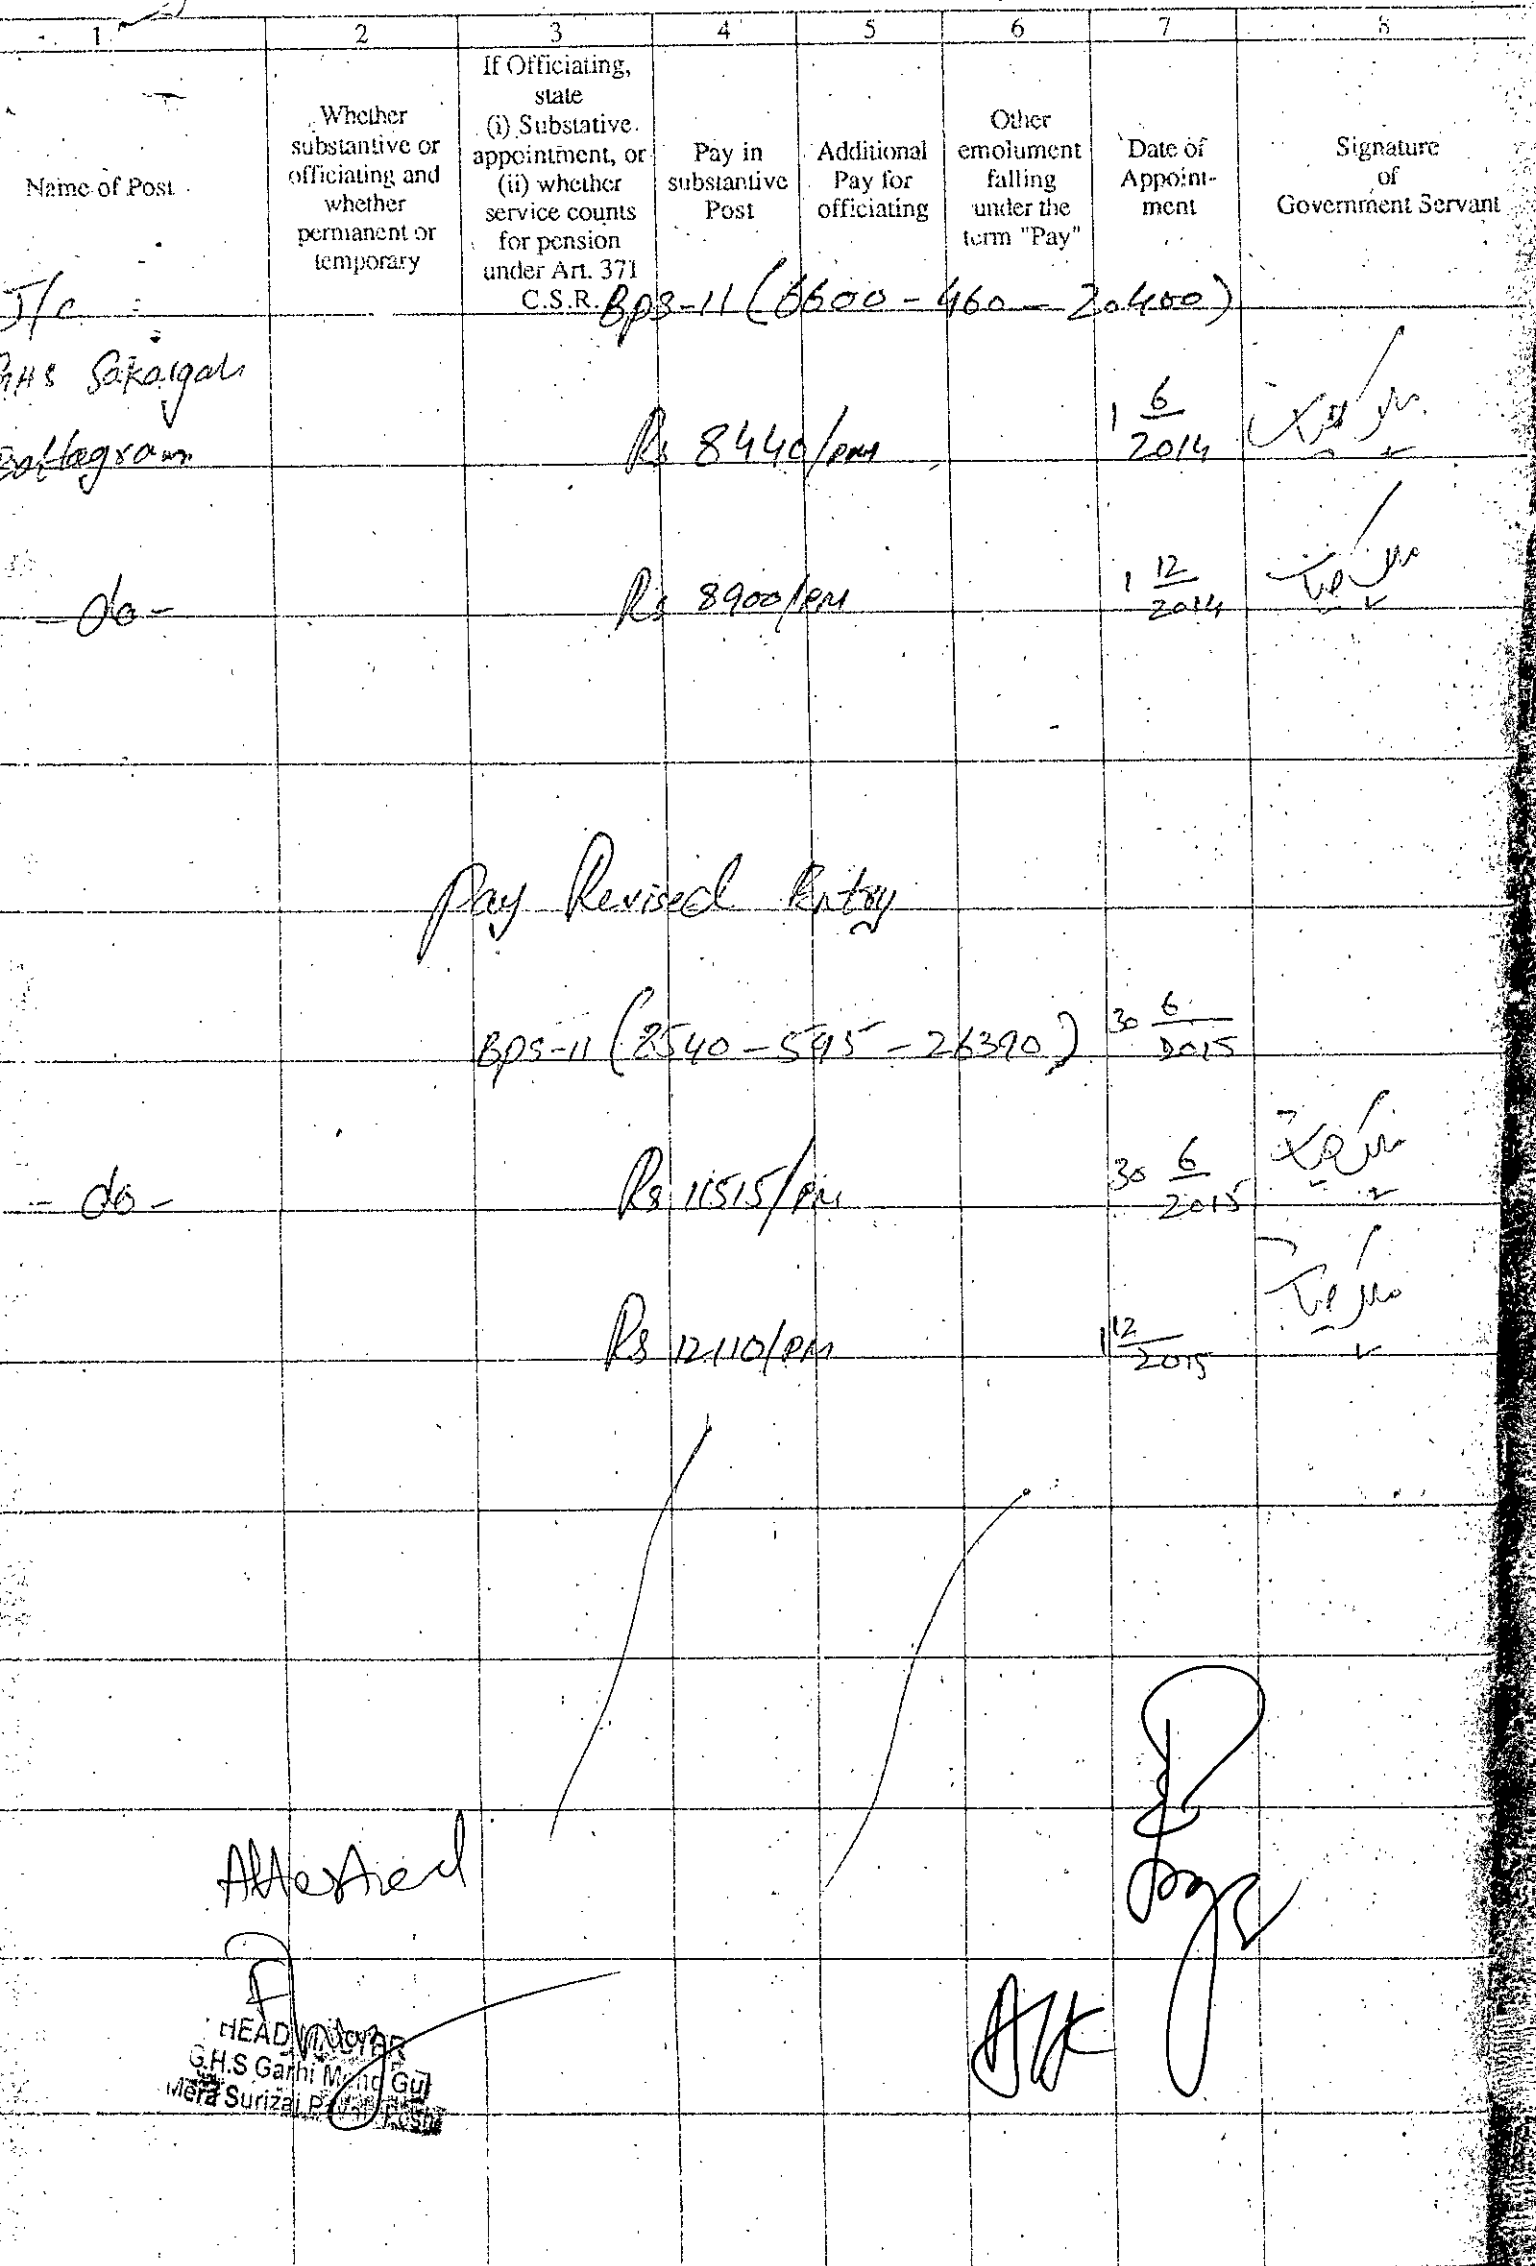 1 2 3 4 5 6 7 8
Name of Post
Whether
substantive or
officiating and
whether
permanent or
temporary
If Officiating,
state
(i) Substative
appointment, or
(ii) whether
service counts
for pension
under Art. 371
C.S.R.
Pay in
substantive
Post
Additional
Pay for
officiating
Other
emolument
falling
under the
term "Pay"
Date of
Appoint-
ment
Signature
of
Government Servant
J/C
BPS-11 (6600-460-20400)
GHS Sakargah
Battagram
Rs 8440/PM
1 6
2014
- do -
Rs 8900/PM
1 12
2014
Pay Revised Entry
BPS-11 (8540-595-26390)
30 6
2015
- do -
Rs 11515/PM
30 6
2015
Rs 12110/PM
1 12
2015
Attested
HEADMASTER
G.H.S Garhi Mond Gul
Mera Surizai